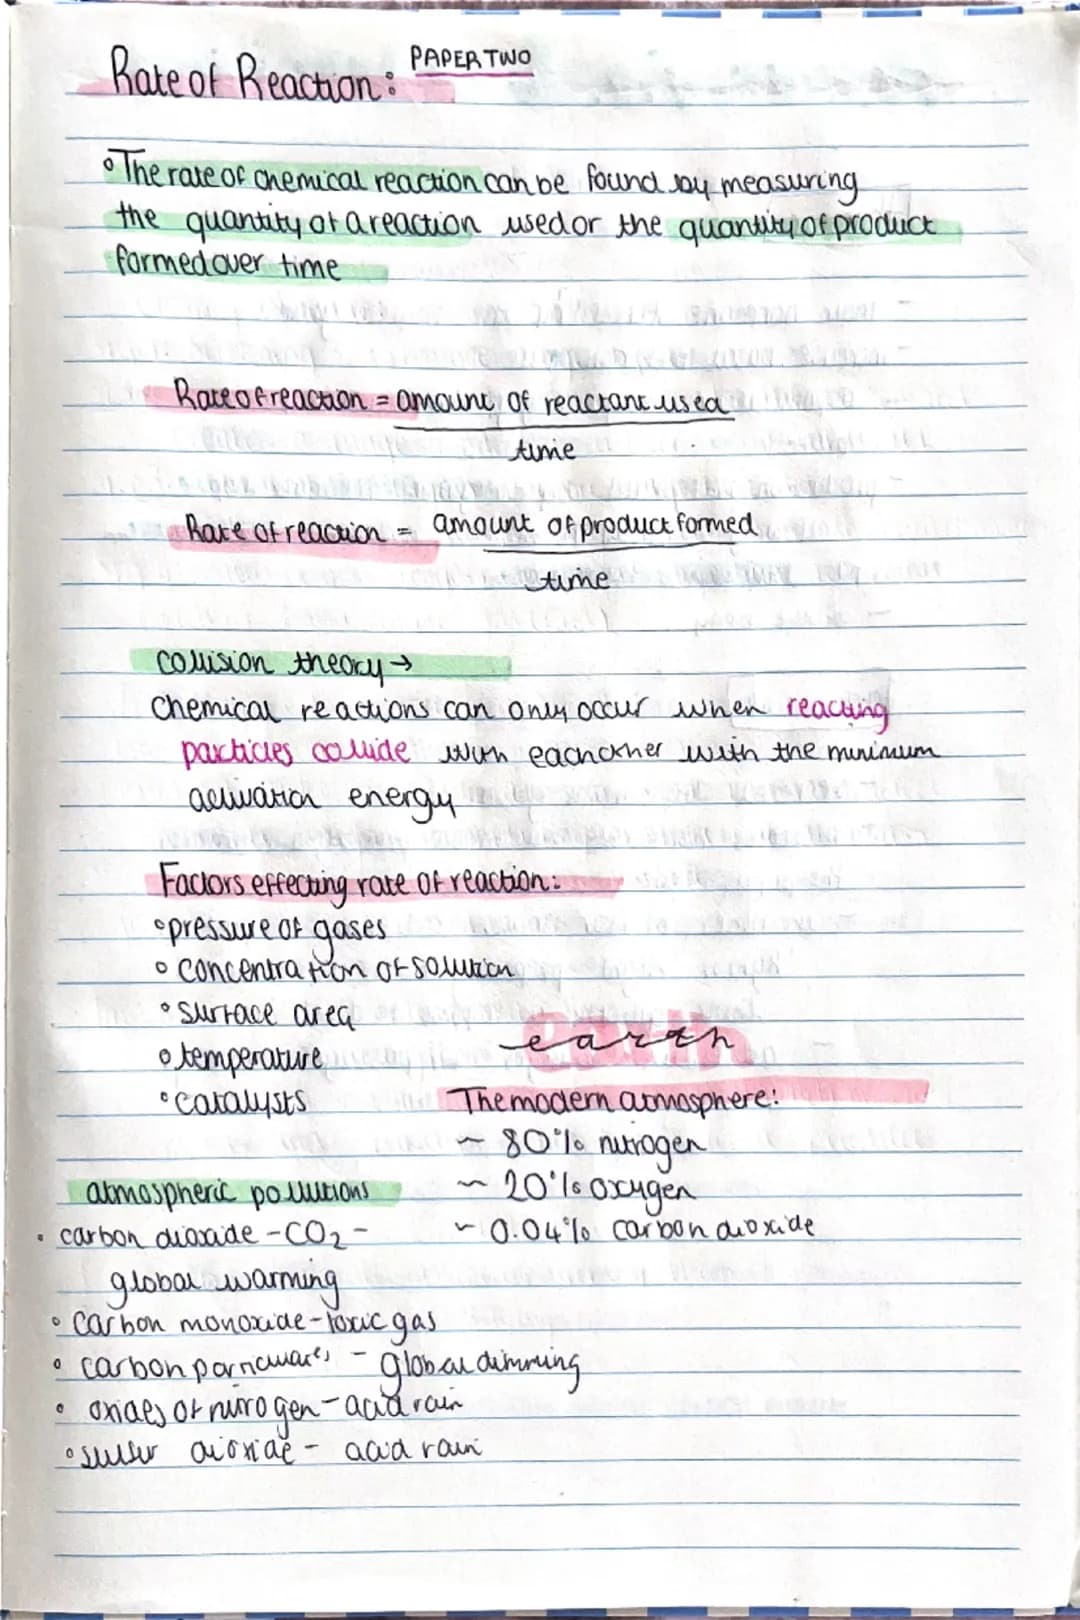 Rate of Reaction:
PAPER TWO
◦ The rate of chemical reaction can be found by measuring
the quantity of a reaction used or the quantity of product
formed over time
Rate of reaction = amount of reactant used
time
Rate of reaction = amount of product formed
time
collision theory →
Chemical reactions can only occur when reacting
particles collide with eachother with the minimum
activation energy
Factors effecting rate of reaction:
◦ pressure of gases
◦ concentration of solution
◦ surface area
◦ temperature
◦ catalysts
earth
The modern atmosphere:
~ 80% nitrogen
~ 20% oxygen
~ 0.04% carbon dioxide
atmospheric pollutions
• carbon dioxide - CO2 -
global warming
◦ carbon monoxide - toxic gas
◦ carbon particulates - global dimming
◦ oxides of nitrogen - acid rain
◦ sulfur dioxide - acid rain